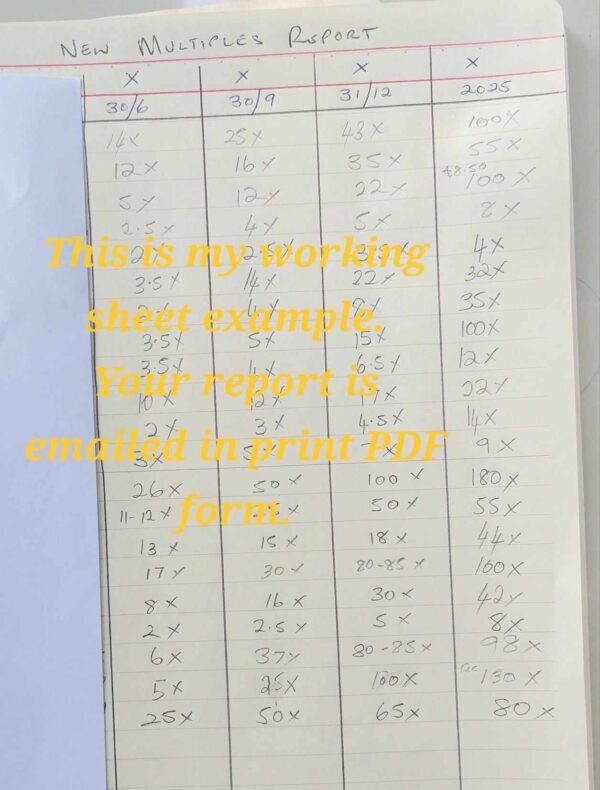 NEW MULTIPLES REPORT
X X X X
30/6 30/9 31/12 2025
14X 25X 43X 100X
12X 16X 35X 55X
5X 12X 22X $8.50 100X
2.5X 4X 5X 8X
2X 2.5X 3.5X 4X
This is my working
3.5X 14X 22X 32X
4X 9X 35X
sheet example.
3.5X 5X 15X 100X
3.5X 4X 6.5X 12X
Your report is
10X 12X 22X
2X 3X 4.5X 14X
emailed in print PDF
9X
26X 50X 100X 180X
form.
11-12X 50X 55X
13X 15X 18X 44X
17X 30X 80-85X 160X
8X 16X 30X 42X
2X 2.5X 5X 8X
6X 37X 80-85X 98X
5X 25X 100X 130X
25X 50X 65X 80X